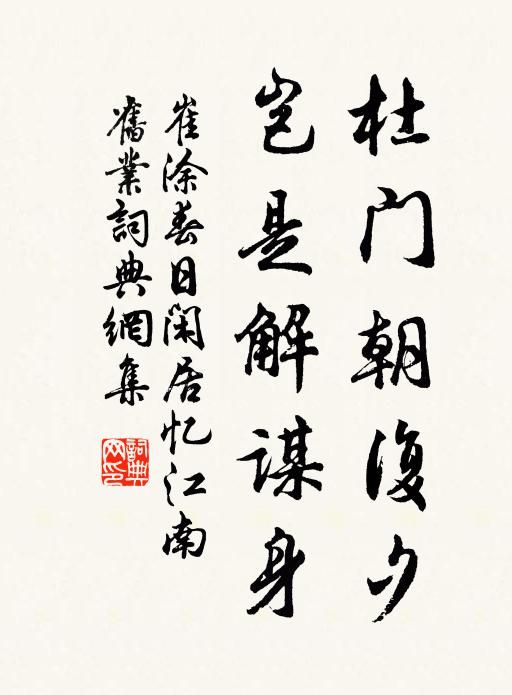 杜门朝復夕
岂是解謀身
崔涂春日閑居忆江南
舊業詞典網集
詞典
网印